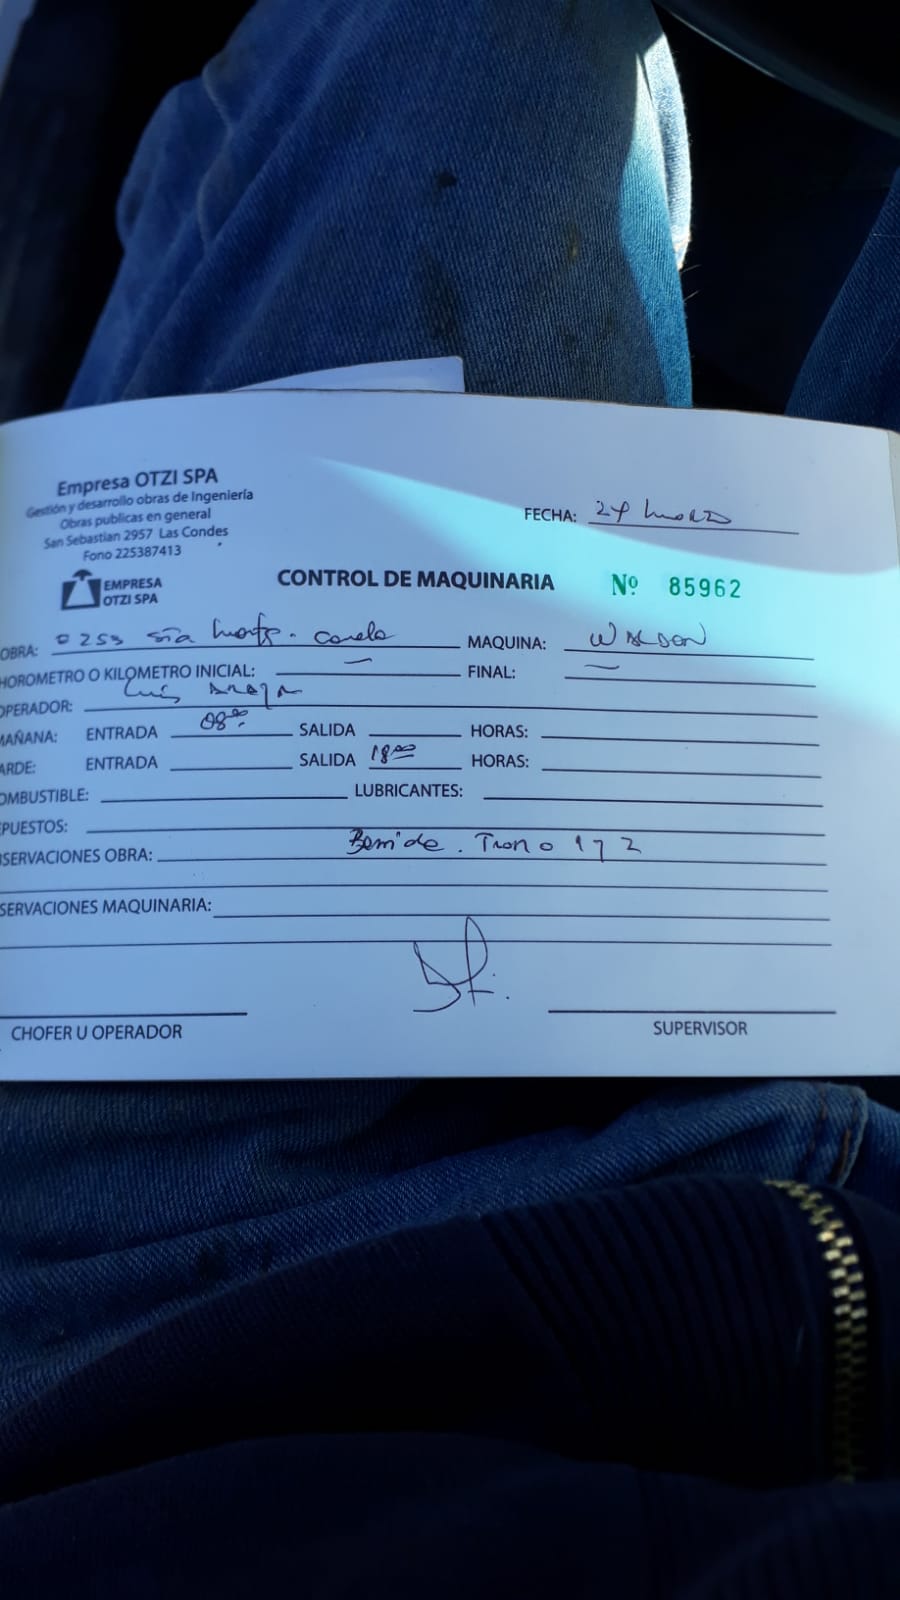 Empresa OTZI SPA
Gestión y desarrollo obras de Ingeniería
Obras publicas en general
San Sebastian 2957 Las Condes
Fono 225387413
EMPRESA
OTZI SPA
FECHA: 24
CONTROL DE MAQUINARIA Nº 85962
OBRA: 0253 MAQUINA:
HOROMETRO O KILOMETRO INICIAL: — FINAL: —
OPERADOR: Luis Araya
MAÑANA: ENTRADA 08:00 SALIDA HORAS:
ARDE: ENTRADA SALIDA 18:00 HORAS:
OMBUSTIBLE: LUBRICANTES:
PUESTOS:
SERVACIONES OBRA: Bermide. Tramo 1 y 2
SERVACIONES MAQUINARIA:
CHOFER U OPERADOR SUPERVISOR